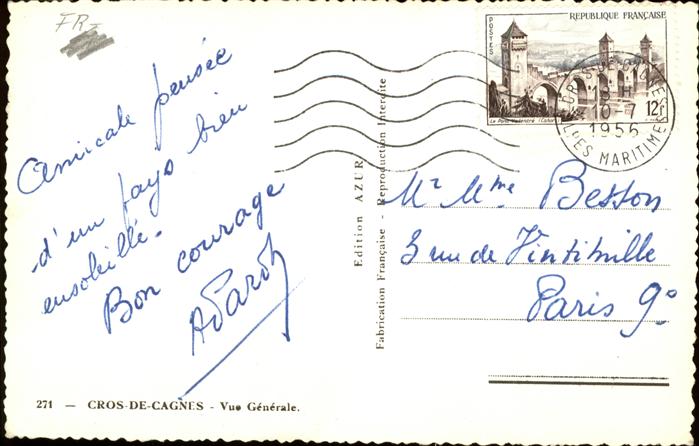 FR
Amicale pensée
d'un pays bien
ensoleillé.
Bon courage
271 — CROS-DE-CAGNES - Vue Générale.
Edition AZUR
Fabrication Française - Reproduction Interdite
REPUBLIQUE FRANÇAISE
POSTES
12F
Le Pont Valentré (Cahors)
CROS-DE-CAGNES
10-7
1956
ALPES MARITIMES
Mr Mme Besson
3 rue de Vintimille
Paris 9e